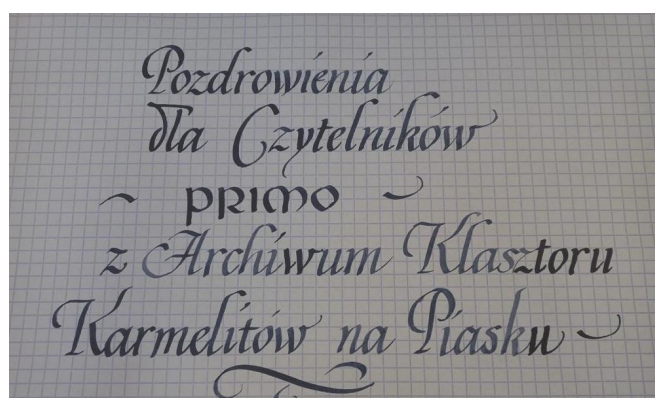 Pozdrowienia
dla Czytelników
~ PRIMO ~
z Archiwum Klasztoru
Karmelitów na Piasku ~